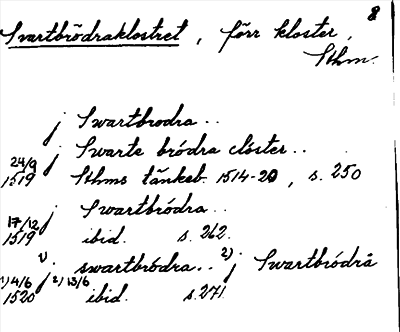 8
Svartbrödraklostret, förr kloster,
Sthm.
j Swartbrodra..
j Swarte brödra closter..
24/9 1519 Sthms tänkeb. 1514-20, s. 250
j Swartbródra..
17/12 1519 ibid. s. 262.
1) j swartbródra.. 2) j Swartbródrä
1) 4/6 1520 2) 13/6 ibid. s. 271.